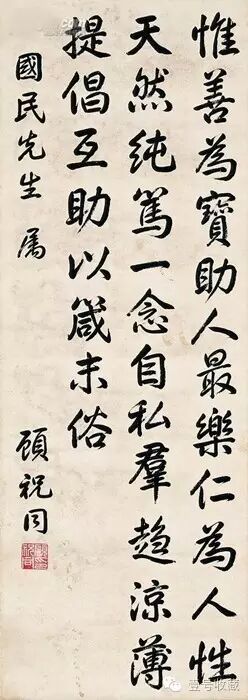 惟善為寶助人最樂仁為人性
天然純篤一念自私羣趋涼薄
提倡互助以箴末俗
國民先生 属
顧祝同
壹号收藏